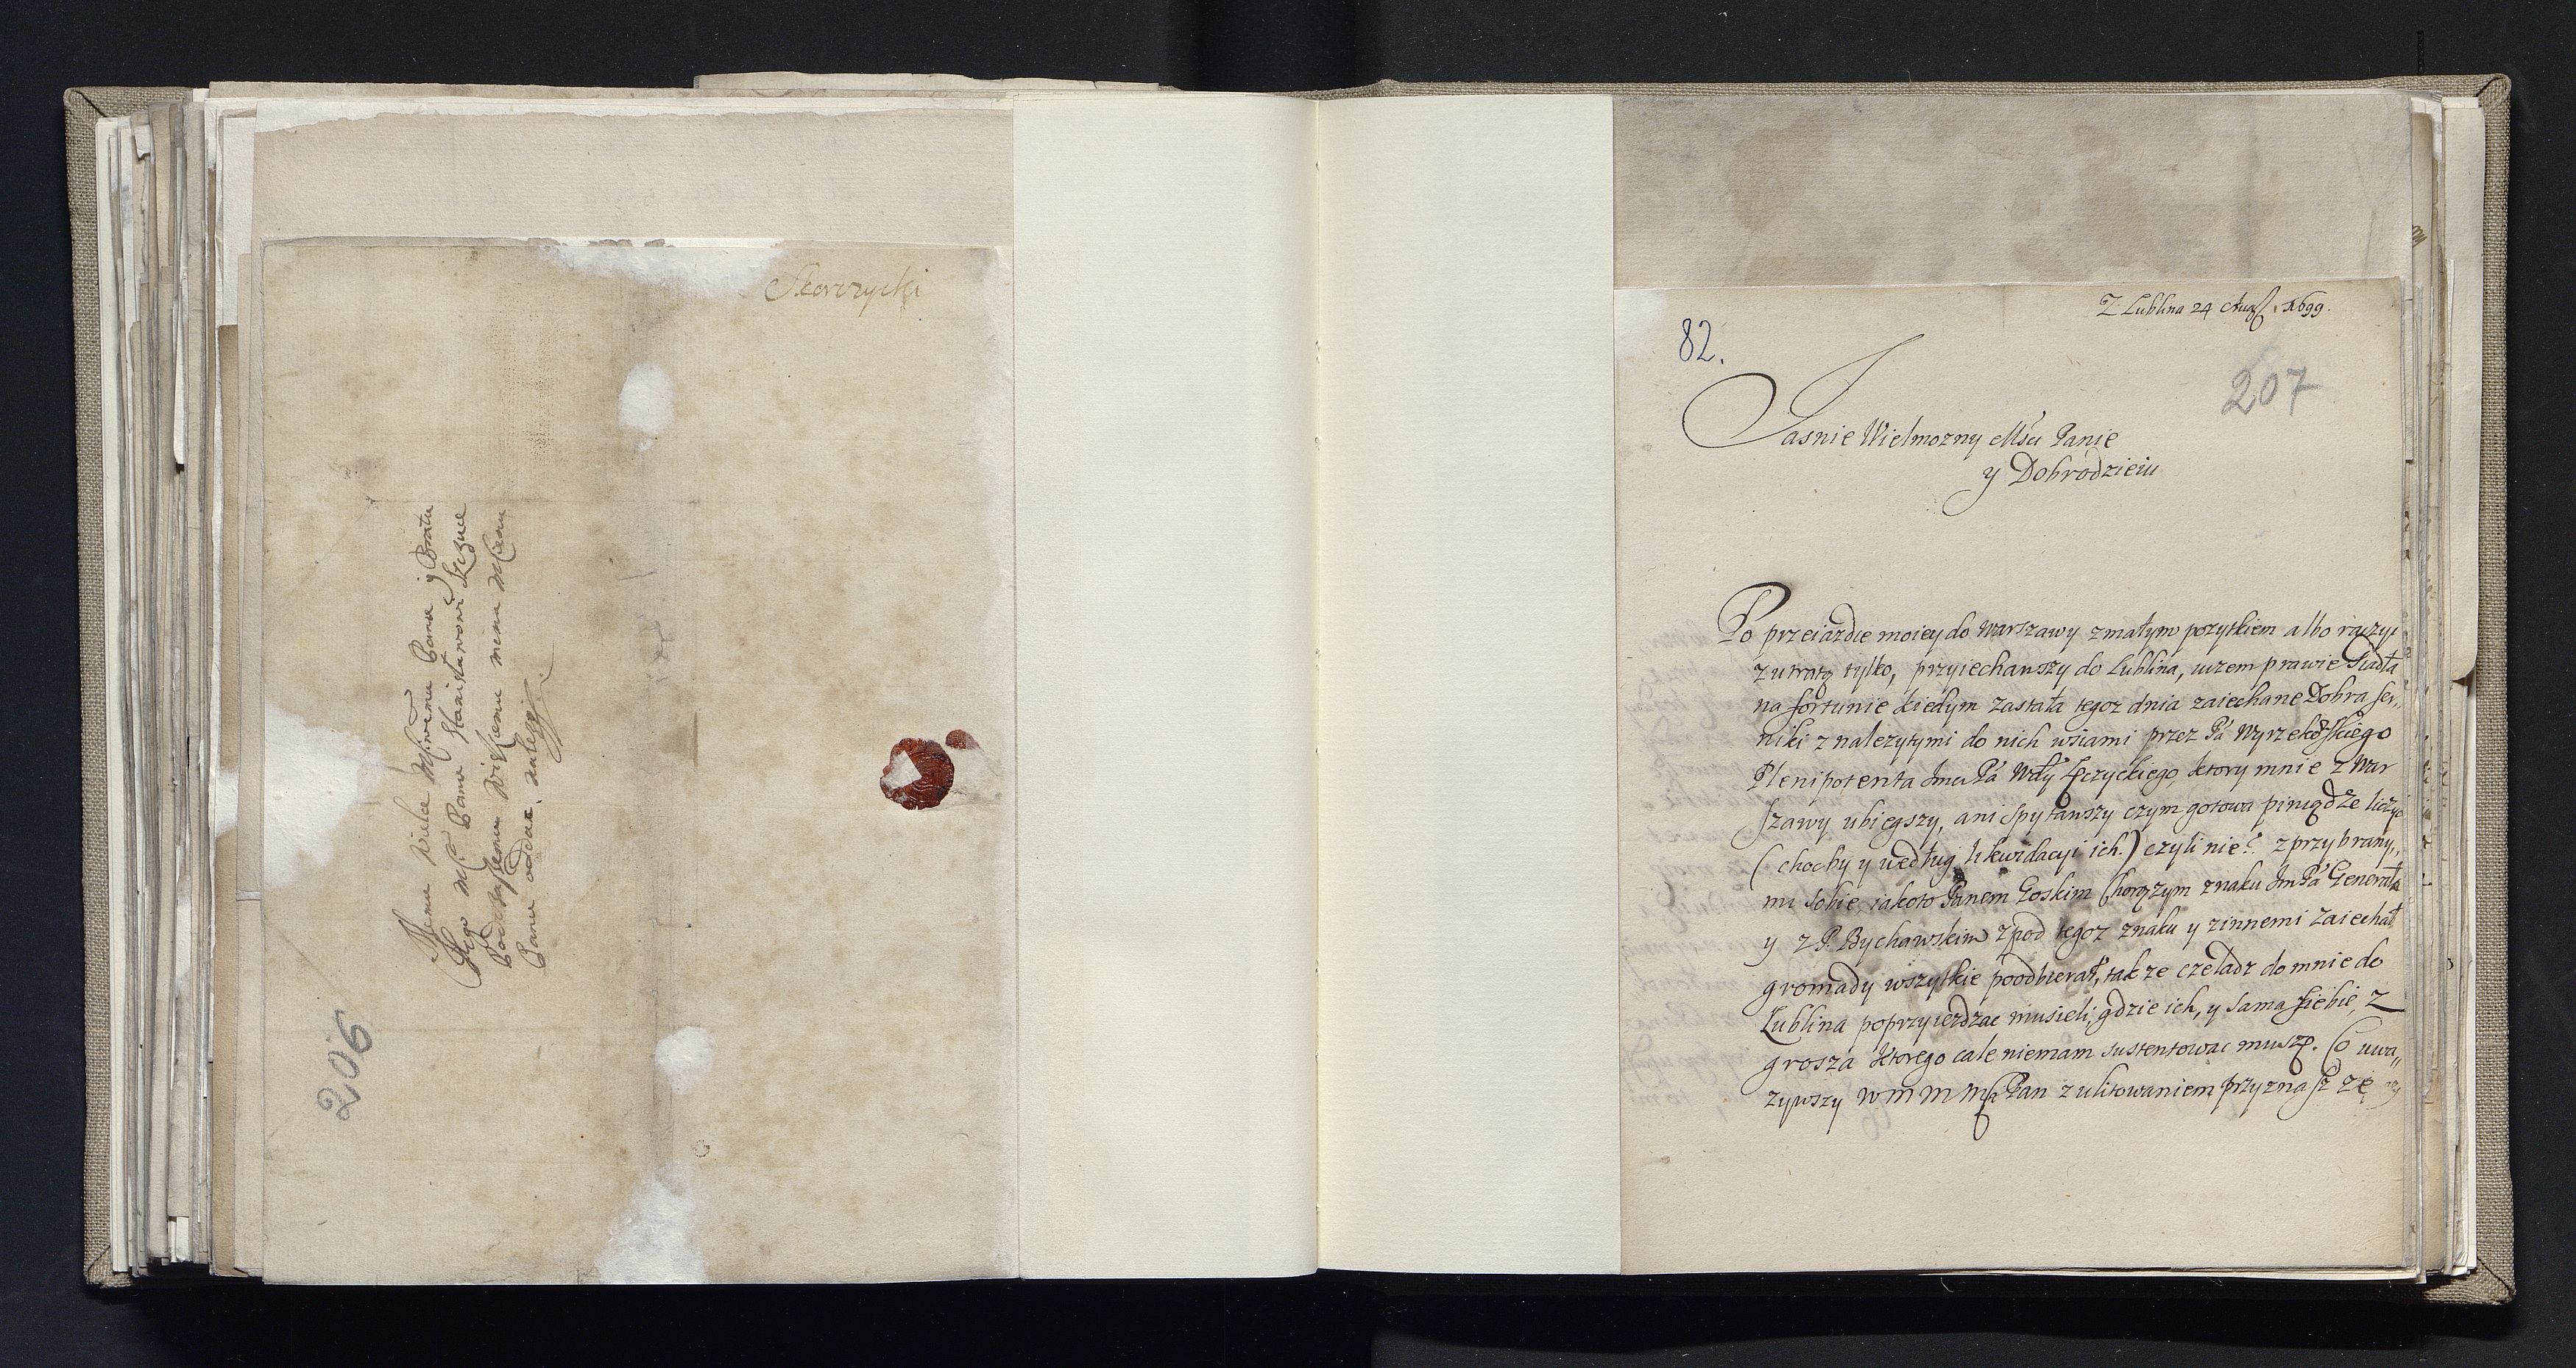 Skorczycki
Memu Wielce Mciwemu Panu y Bratu
Jego Mci Panu Stanisławowi Szczuce
Panu oddac należy
206
Z Lublina 24 Aug. 1699.
82.
207
Jasnie Wielmozny Msci Panie
y Dobrodzieiu
Po przeiazdce moiey do Warszawy z małym pozytkiem albo raczyi
z utratą tylko, przyiechawszy do Lublina, iuzem prawie siadła
na fortunie kiedym zastała tegoz dnia zaiechane Dobra Ser„
niki z nalezytymi do nich wsiami przez Pa Wyrzekowskiego
Plenipotenta Jmci Pa Wdy Łęczyckiego, ktory mnie z War
szawy ubiegszy, ani spytawszy czym gotowa pieniądze liczyc
(chocby y według likwidacyi ich) czyli nie? z przybrany„
mi sobie iakoto Panem Łoskim Chorązym znaku Jm Pa Generała
y z P. Bychawskim z pod tegoz znaku y z innemi zaiechał
gromady wszytkie poodbierał, tak ze czeladz do mnie do
Lublina poprzyiezdzac musieli, gdzie ich, y sama siebie, z
grosza ktorego cale niemam sustentowac muszę. Co uwa„
zywszy W m m Msci Pan z ulitowaniem przyznasz ze